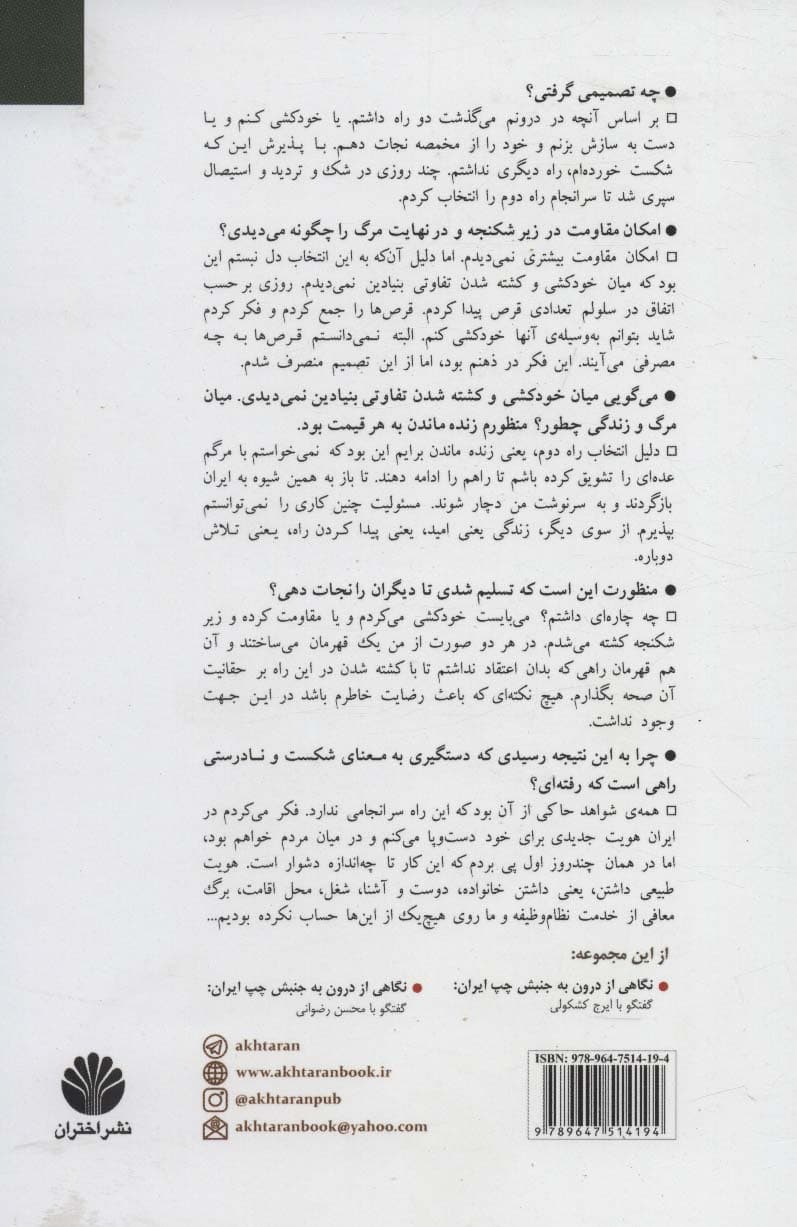 ● چه تصمیمی گرفتی؟
□ بر اساس آنچه در درونم می‌گذشت دو راه داشتم. یا خودکشی کنم و یا
دست به سازش بزنم و خود را از مخمصه نجات دهم. با پذیرش این که
شکست خورده‌ام، راه دیگری نداشتم. چند روزی در شک و تردید و استیصال
سپری شد تا سرانجام راه دوم را انتخاب کردم.
● امکان مقاومت در زیر شکنجه و در نهایت مرگ را چگونه می‌دیدی؟
□ امکان مقاومت بیشتری نمی‌دیدم. اما دلیل آن‌که به این انتخاب دل نبستم این
بود که میان خودکشی و کشته شدن تفاوتی بنیادین نمی‌دیدم. روزی بر حسب
اتفاق در سلولم تعدادی قرص پیدا کردم. قرص‌ها را جمع کردم و فکر کردم
شاید بتوانم به‌وسیله‌ی آنها خودکشی کنم. البته نمی‌دانستم قرص‌ها به چه
مصرفی می‌آیند. این فکر در ذهنم بود، اما از این تصمیم منصرف شدم.
● می‌گویی میان خودکشی و کشته شدن تفاوتی بنیادین نمی‌دیدی. میان
مرگ و زندگی چطور؟ منظورم زنده ماندن به هر قیمت بود.
□ دلیل انتخاب راه دوم، یعنی زنده ماندن برایم این بود که نمی‌خواستم با مرگم
عده‌ای را تشویق کرده باشم تا راهم را ادامه دهند. تا باز به همین شیوه به ایران
بازگردند و به سرنوشت من دچار شوند. مسئولیت چنین کاری را نمی‌توانستم
بپذیرم. از سوی دیگر، زندگی یعنی امید، یعنی پیدا کردن راه، یعنی تلاش
دوباره.
● منظورت این است که تسلیم شدی تا دیگران را نجات دهی؟
□ چه چاره‌ای داشتم؟ می‌بایست خودکشی می‌کردم و یا مقاومت کرده و زیر
شکنجه کشته می‌شدم. در هر دو صورت از من یک قهرمان می‌ساختند و آن
هم قهرمان راهی که بدان اعتقاد نداشتم تا با کشته شدن در این راه بر حقانیت
آن صحه بگذارم. هیچ نکته‌ای که باعث رضایت خاطرم باشد در این جهت
وجود نداشت.
● چرا به این نتیجه رسیدی که دستگیری به معنای شکست و نادرستی
راهی است که رفته‌ای؟
□ همه‌ی شواهد حاکی از آن بود که این راه سرانجامی ندارد. فکر می‌کردم در
ایران هویت جدیدی برای خود دست‌وپا می‌کنم و در میان مردم خواهم بود،
اما در همان چندروز اول پی بردم که این کار تا چه‌اندازه دشوار است. هویت
طبیعی داشتن، یعنی داشتن خانواده، دوست و آشنا، شغل، محل اقامت، برگ
معافی از خدمت نظام‌وظیفه و ما روی هیچ‌یک از این‌ها حساب نکرده بودیم...
از این مجموعه:
● نگاهی از درون به جنبش چپ ایران:
گفتگو با ایرج کشکولی
● نگاهی از درون به جنبش چپ ایران:
گفتگو با محسن رضوانی
akhtaran
www.akhtaranbook.ir
@akhtaranpub
akhtaranbook@yahoo.com
نشر اختران
ISBN: 978-964-7514-19-4
9 789647 514194